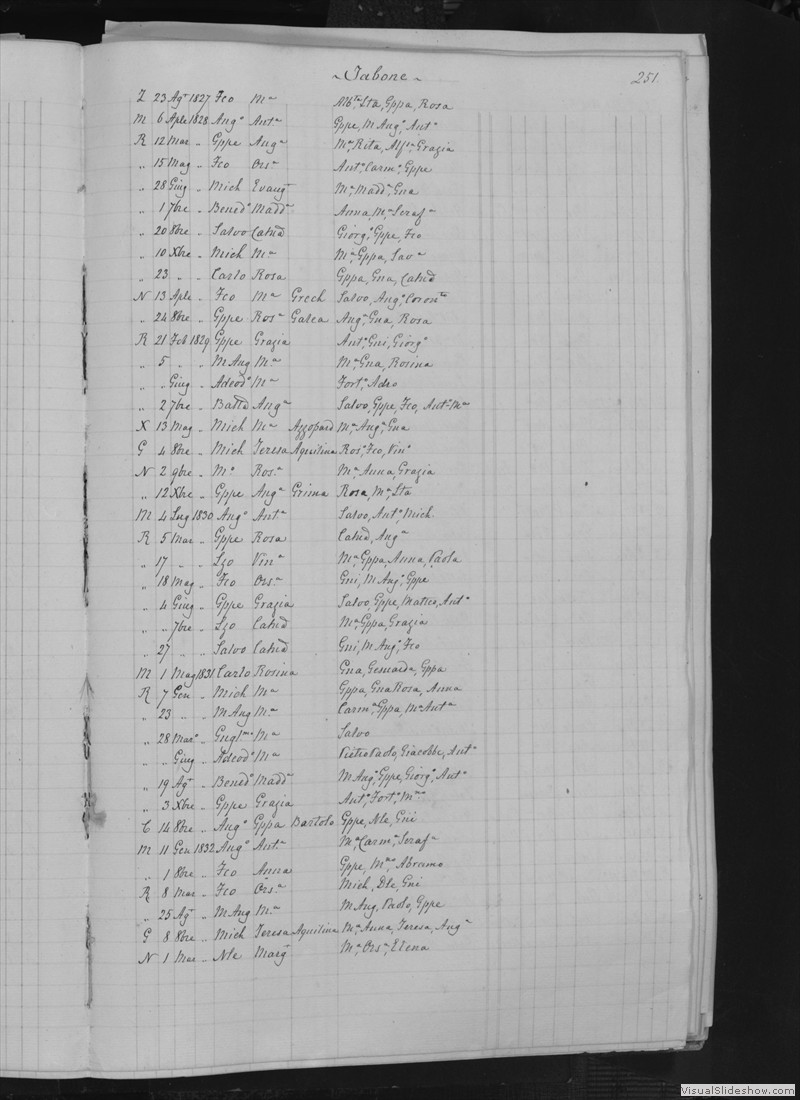 ~ Tabone ~ 251.
Z 23 Agto 1827 Fco Ma Albta, Sta, Gppa, Rosa
M 6 Aple 1828 Ango Anta Gppe, M Ango, Anto
R 12 Mar „ Gppe Anga Ma, Rita, Alfsa, Grazia
„ 15 Mag „ Fco Orsa Anto, Carmo, Gppe
„ 28 Giug „ Mich Evangta Ma, Madda, Gna
„ 1 7bre „ Benedo Madda Anna, Ma, Serafa
„ 20 8bre „ Salvo Catnd Giorgo, Gppe, Fco
„ 10 Xbre „ Mich Ma Ma, Gppa, Sava
„ 23 „ „ Carlo Rosa Gppa, Gna, Catnd
N 13 Aple „ Fco Ma Grech Salvo, Ango, Coronta
„ 24 8bre „ Gppe Rosa Galea Anga, Gna, Rosa
R 21 Feb 1829 Gppe Grazia Anto, Gni, Giorgo
„ 5 „ „ M Ang Ma Ma, Gna, Rosina
„ „ Giug „ Adeodo Ma Forto, Adeo
„ 2 7bre „ Battd Anga Salvo, Gppe, Fco, Anto, Mno
X 13 Mag „ Mich Ma Azzopard Ma, Anga, Gna
G 4 8bre „ Mich Teresa Aquilina Roso, Fco, Vino
N 2 9bre „ Mo Rosa Ma, Anna, Grazia
„ 12 Xbre „ Gppe Anga Grima Rosa, Ma, Sta
M 4 Lug 1830 Ango Anta Salvo, Anto, Mich
R 5 Mar „ Gppe Rosa Catnd, Anga
„ 17 „ „ Lzo Vina Ma, Gppa, Anna, Paola
„ 18 Mag „ Fco Orsa Gni, M Ango, Gppe
„ 4 Giug „ Gppe Grazia Salvo, Gppe, Matteo, Anto
„ „ 7bre „ Lzo Catnd Ma, Gppa, Grazia
„ 27 „ „ Salvo Catnd Gni, M Ango, Fco
M 1 Mag 1831 Carlo Rosina Gna, Gppa
R 7 Gen „ Mich Ma Gppa, Gna Rosa, Anna
„ 23 „ „ M Ang Ma Carma, Gppa, Ma Anta
„ 28 Marzo „ Guglmo Ma Salvo
„ „ Giug „ Adeodo Ma Pietro Paolo, Giacobbe, Anto
„ 19 Agto „ Benedo Madda M Ango, Gppe, Giorgo, Anto
„ 3 Xbre „ Gppe Grazia Anto, Forto, Mno
C 14 8bre „ Ango Gppa Bartolo Gppe, Nle, Gni
M 11 Gen 1832 Ango Anta Ma, Carma, Serafa
„ 1 8bre „ Fco Anna Gppe, Mno, Abramo
R 8 Mar „ Fco Orsa Mich, Dle, Gni
„ 25 Agto „ M Ang Ma M Ang, Paolo, Gppe
G 8 8bre „ Mich Teresa Aquilina Ma, Anna, Teresa, Anga
N 1 Mar „ Nle Margta Ma, Orsa, Elena
VisualSlideshow.com